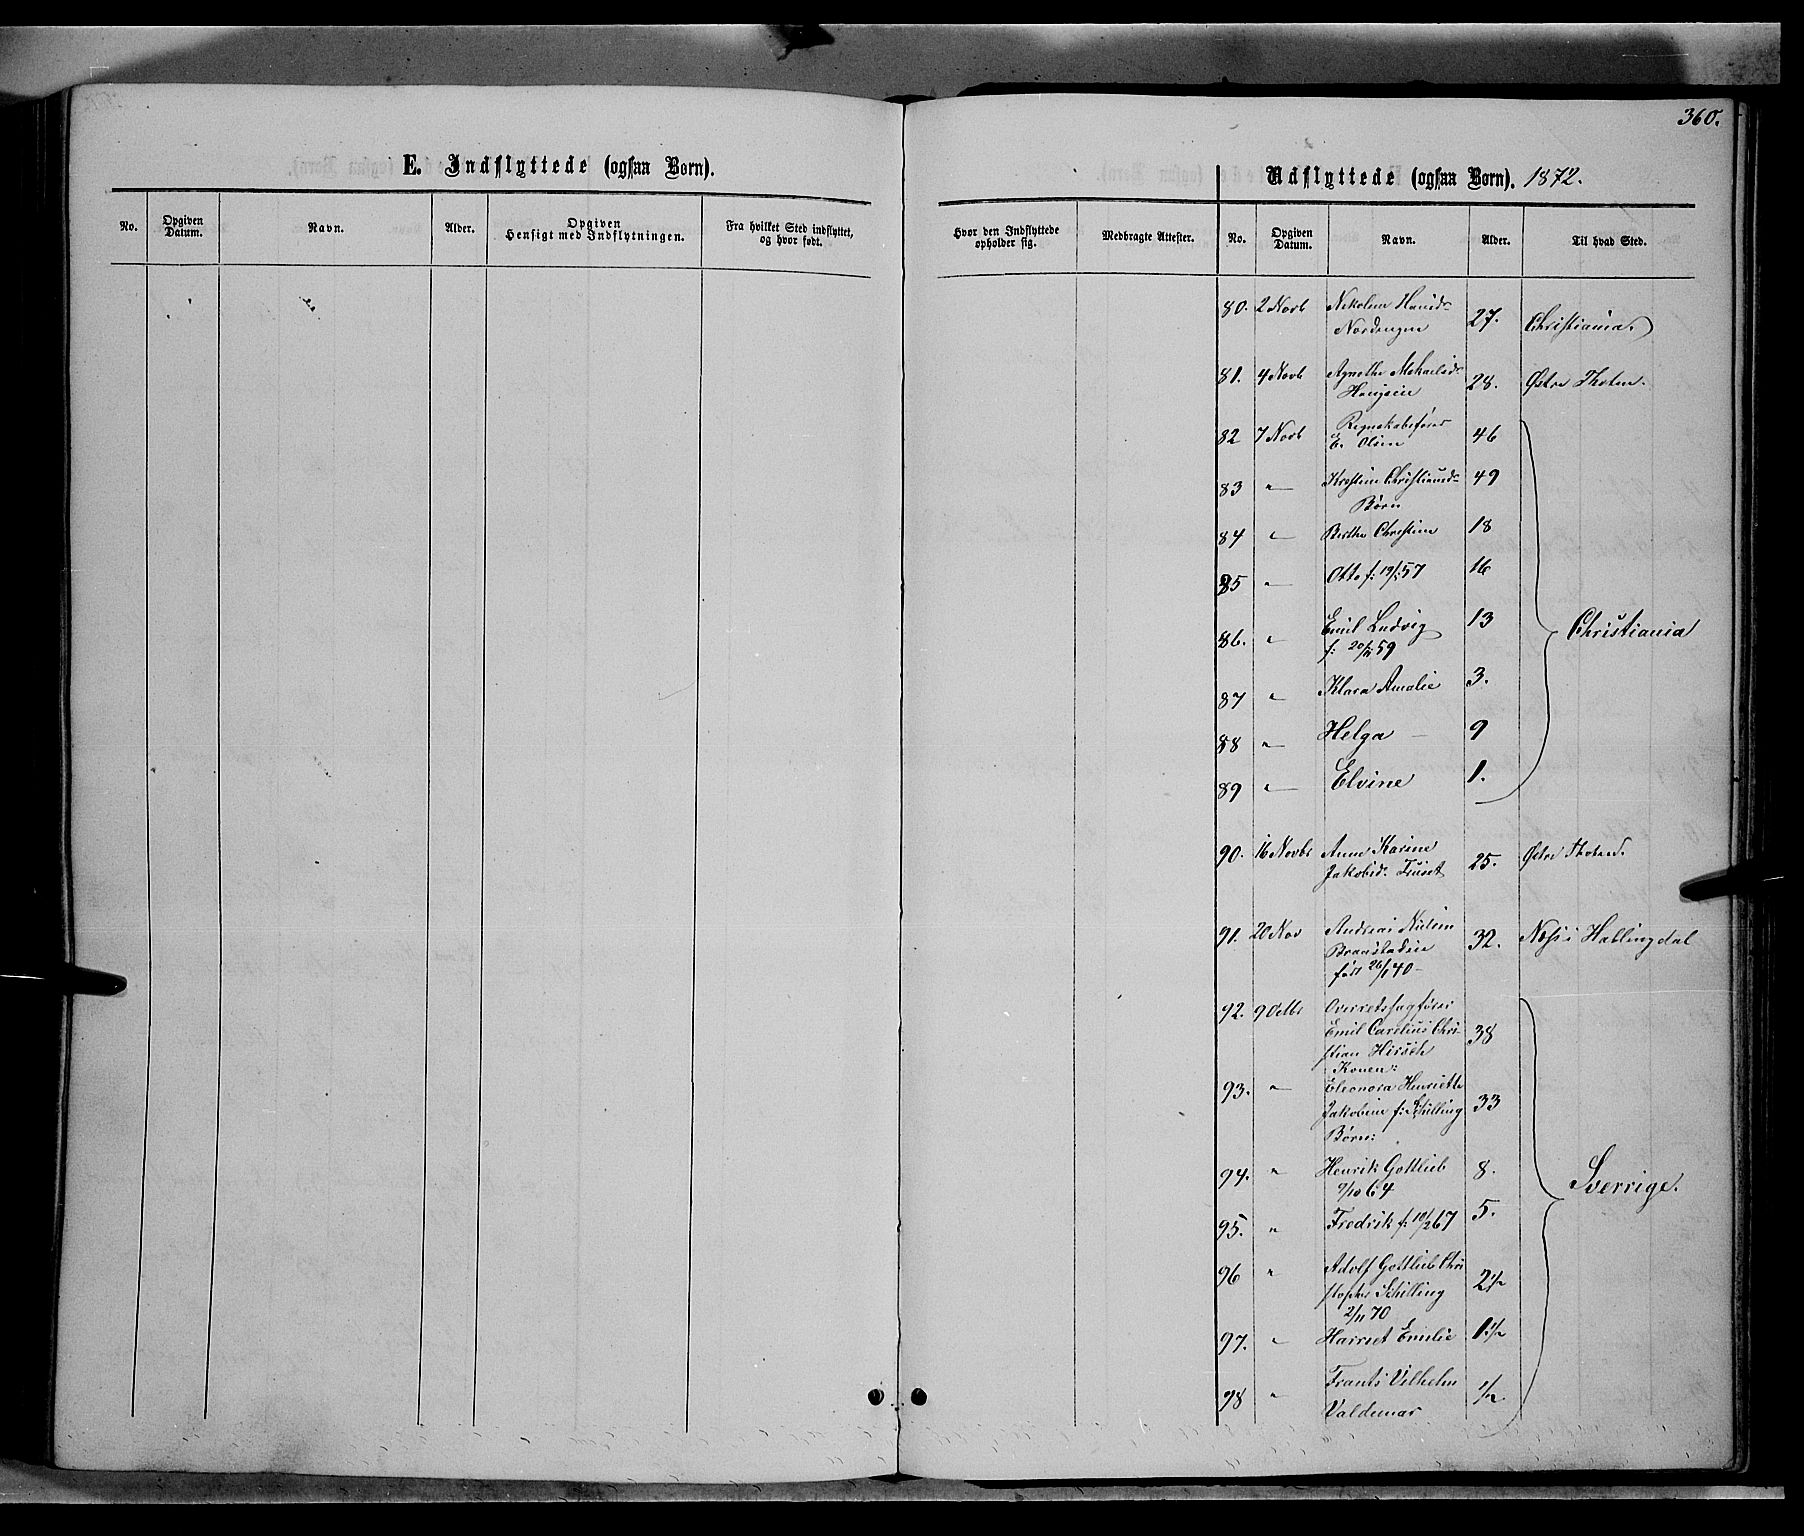 360.
E. Indflyttede (ogsaa Børn).
No.
Opgiven Datum.
Navn.
Alder.
Opgiven Hensigt med Indflytningen.
Fra hvilket Sted indflyttet, og hvor født.
Udflyttede (ogsaa Børn). 1872.
Hvor den Indflyttede opholder sig.
Medbragte Attester.
No.
Opgiven Datum.
Navn.
Alder.
Til hvad Sted.
80. 2 Novb Nikoline Hansd- 27. Christiania.
Nordengen
81. 4 Novb Agnethe Mikaelsd- 28. Østre Thoten.
82 7 Novb Regnskabsfører 46
E. Olsen
83 " Kristine Christiansd- 49
Børn
84 " Berthe Christine 18
85 " Otto f: 19/5 57 16
86. " Emil Ludvig 13 Christiania
f: 59
87 " Klara Amalie 3.
88 " Helga — 9
89 " Elvine 1.
90. 16 Novbr Anne Karine 25. Østre Thoten.
Jakobsd-
91. 20 Nov Andreas Nilsen 32. Næs i Hallingdal
født 26/1 40-
92. 9 Octbr Overretssagfører
Emil Carelius Chri- 38
stian Hirsch
Konen:
93. " Eleonora Henriette
Jakobine f: Schilling 33
Børn:
94. " Henrik Gottlieb 8. Sverrige.
9/10 64
95. " Fredrik f: 10/2 67 5.
96 " Adolf Gottlieb Chri
stopher Schilling 2 1/2
2/11 70
97. " Harriet Emilie 1 1/2
98 " Frants Vilhelm 1/2
Valdemar